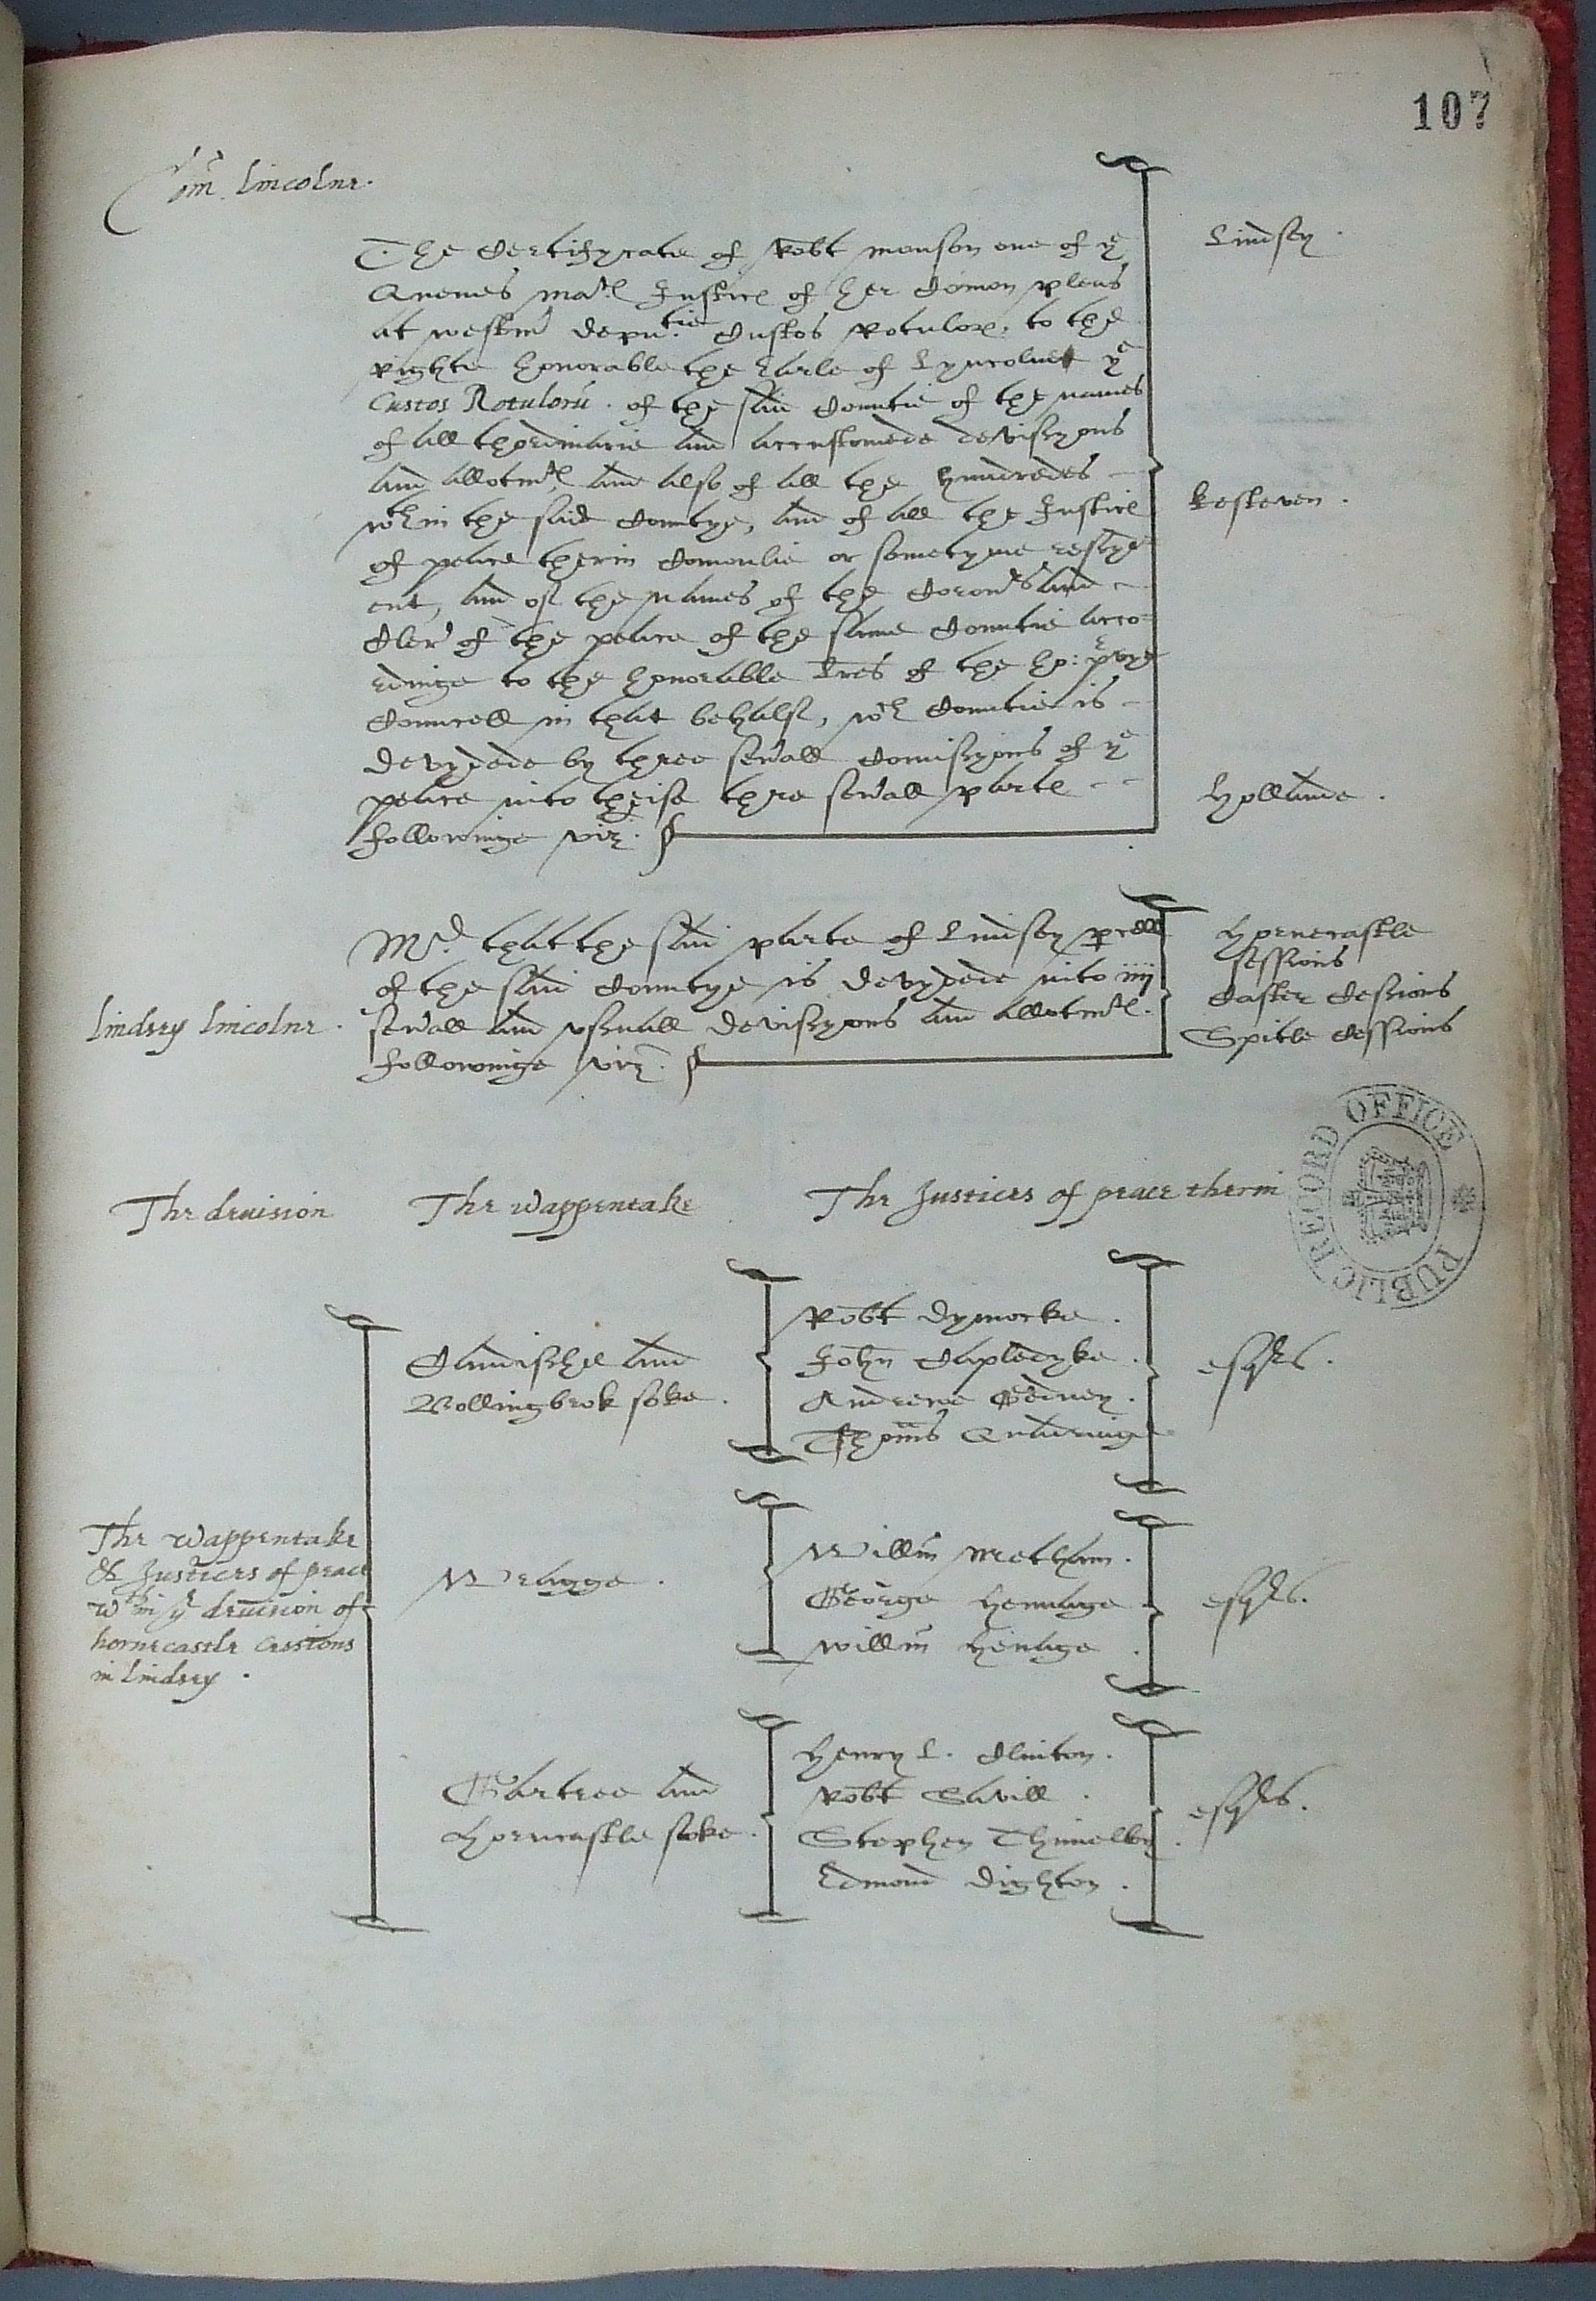 107
Com. Lincolne.
The Certifycate of Robt Monson one of ye
Quenes Matꝭ Justicꝭ of her Comon pleas
at westm̃ deputie Custos Rotulorꝭ. to the
righte honorable the Earle of Lyncolne ye
Custos Rotuloru . of the said Countie of the names
of all thordinarie and accustomede devisyons
and allotmtꝭ and also of all the hundredes
wthin the said Countye, and of all the Justicꝭ
of peace therin Comonlie or sometyme resyd
ent, and of the names of the Coron's and
Cler' of the peace of the same Countie acco
rdinge to the honorable lres of the ho: pryve
Councell in that behalf, wch Countie is
devydede by three seu'all Comissyons of ye
peace into theise thre seu'all partꝭ
followinge viz.
Lindsey .
Kesteven .
Hollande .
Lindsey Lincolne .
Md. that the said parte of Lindsey p̱cell
of the said Countye is devydede into iiij
seu'all and vsuall devisyons and allotmtꝭ.
followinge viz.
Hornecastle
sessions
Caster Cessions
Spitle Cessions
The deuision The wappentake The Justices of peace therin
The wappentake
& Justices of peace
wthin ye deuision of
hornecastle Cessions
in Lindsey .
Candisshe and
Bollingbrok soke .
Robt Dymocke .
John Copledyke .
Andrewe Gedney .
Thom̃s Quadringe
esqrs .
Wragge .
Willm Metham .
George Hennage
Willm Henage .
esqrs .
Gartree and
Horncastle soke .
Henry L. Clinton .
Robt Savill .
Stephen Thimelby .
Edmond Dighton .
esqrs .
PUBLIC RECORD OFFICE